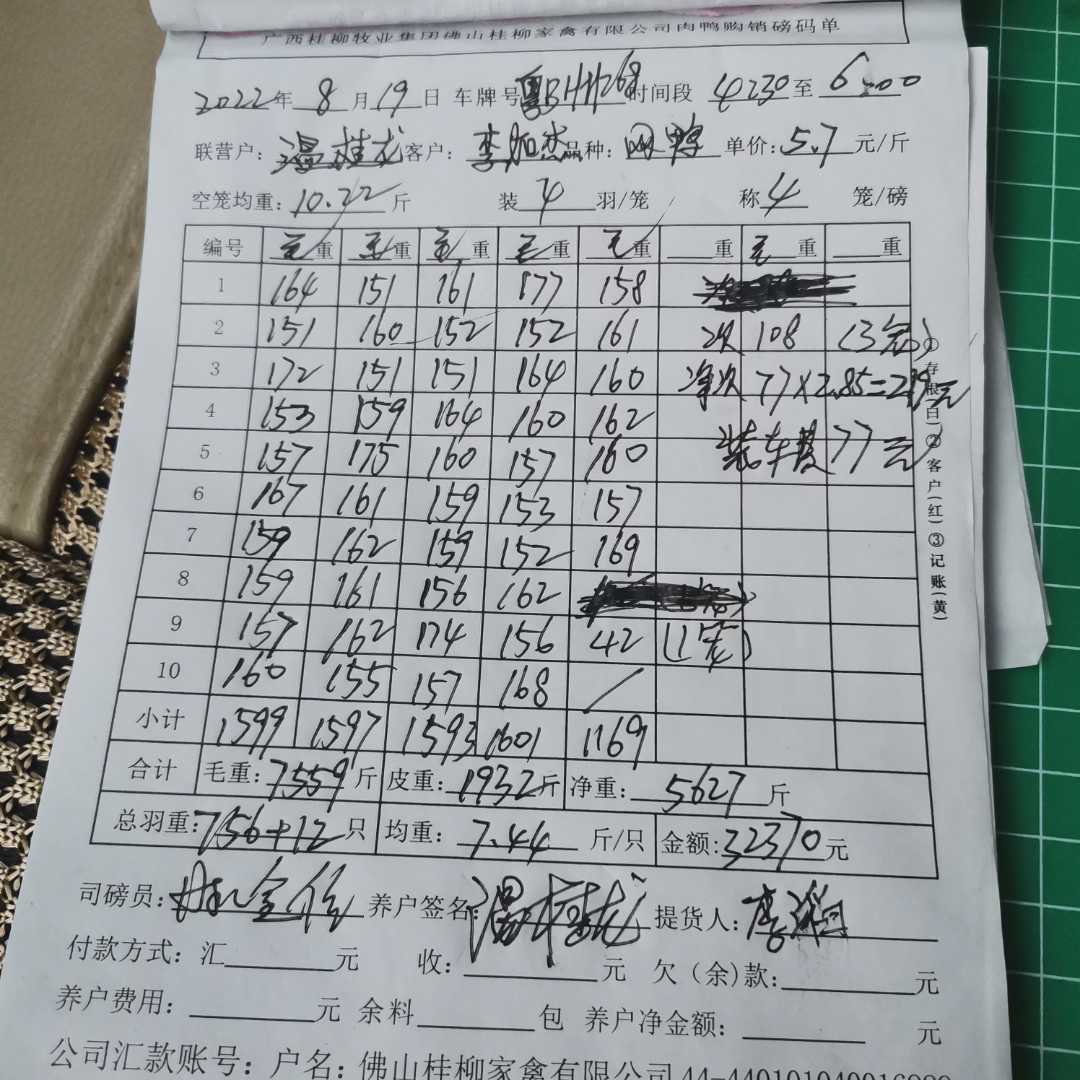 广西桂柳牧业集团佛山桂柳家禽有限公司肉鸭购销磅码单
2022年 8 月 19 日 车牌号 粤BHH268 时间段 4:30 至 6:00
联营户: 温桂龙 客户: 李柏杰 品种: 网鸭 单价: 5.7 元/斤
空笼均重: 10.22 斤 装 4 羽/笼 称 4 笼/磅
编号 毛重 毛重 毛重 毛重 毛重 重 毛重 重
1 164 151 161 177 158
2 151 160 152 152 161 次 108 (3笼)
3 172 151 151 164 160 净次 77×2.85=219元
4 153 159 164 160 162
5 157 175 160 157 160 装车费 77元
6 167 161 159 153 157
7 159 162 159 152 169
8 159 161 156 162
9 157 162 174 156 42 (1笼)
10 160 155 157 168 /
小计 1599 1597 1593 1601 1169
合计 毛重: 7559 斤 皮重: 1932 斤 净重: 5627 斤
总羽重: 756+12 只 均重: 7.44 斤/只 金额: 32370 元
司磅员: 养户签名: 温桂龙 提货人:
付款方式: 汇 元 收: 元 欠(余)款: 元
养户费用: 元 余料 包 养户净金额: 元
公司汇款账号: 户名: 佛山桂柳家禽有限公司
①存根(白)②客户(红)③记账(黄)